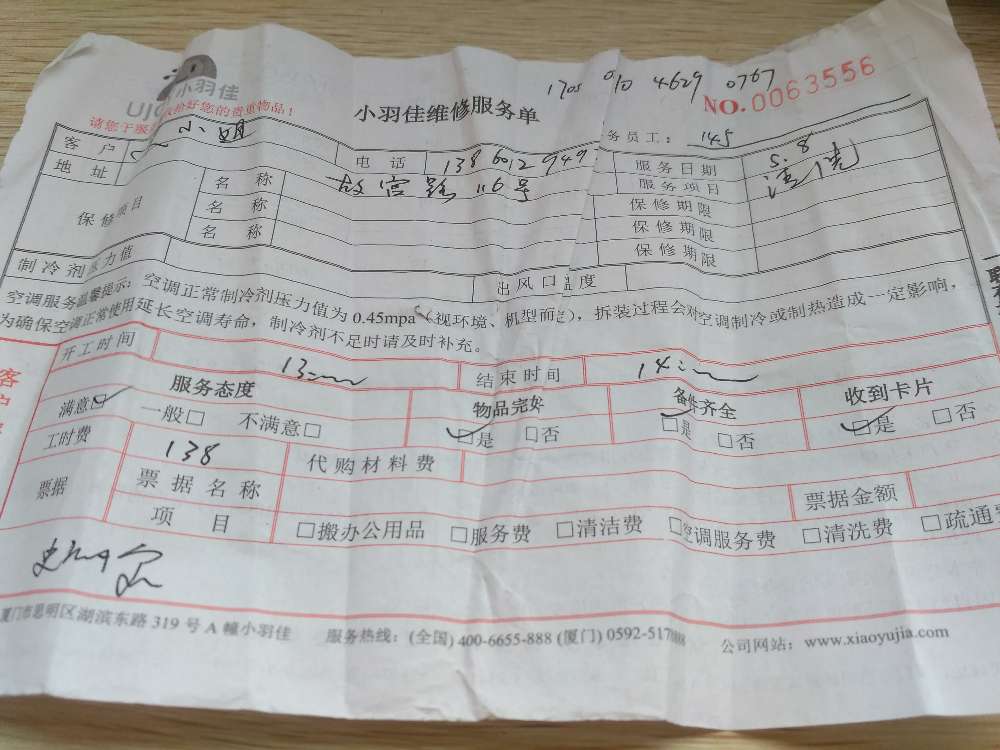 小羽佳
1705 010 4629 0767
小羽佳维修服务单 NO.0063556
请您于服 收拾好您的贵重物品！
务员工： 145
客户 小姐 电话 服务日期 5.8
地址 故宫路 116号 服务项目 清洗
保修项目 名称 保修期限
名称 保修期限
名称 保修期限
制冷剂压力值 出风口温度
空调服务温馨提示：空调正常制冷剂压力值为 0.45mpa（视环境、机型而定），拆装过程会对空调制冷或制热造成一定影响，
为确保空调正常使用延长空调寿命，制冷剂不足时请及时补充。
开工时间 13: 结束时间 14:
服务态度 物品完好 备件齐全 收到卡片
满意☑ 一般□ 不满意□ ☑是 □否 ☑是 □否 ☑是 □否
工时费 138 代购材料费
票据 票据名称 票据金额
项目 □搬办公用品 □服务费 □清洁费 □空调服务费 □清洗费 □疏通
厦门市思明区湖滨东路 319 号 A 幢小羽佳 服务热线：(全国) 400-6655-888 (厦门) 0592-517 公司网站：www.xiaoyujia.com